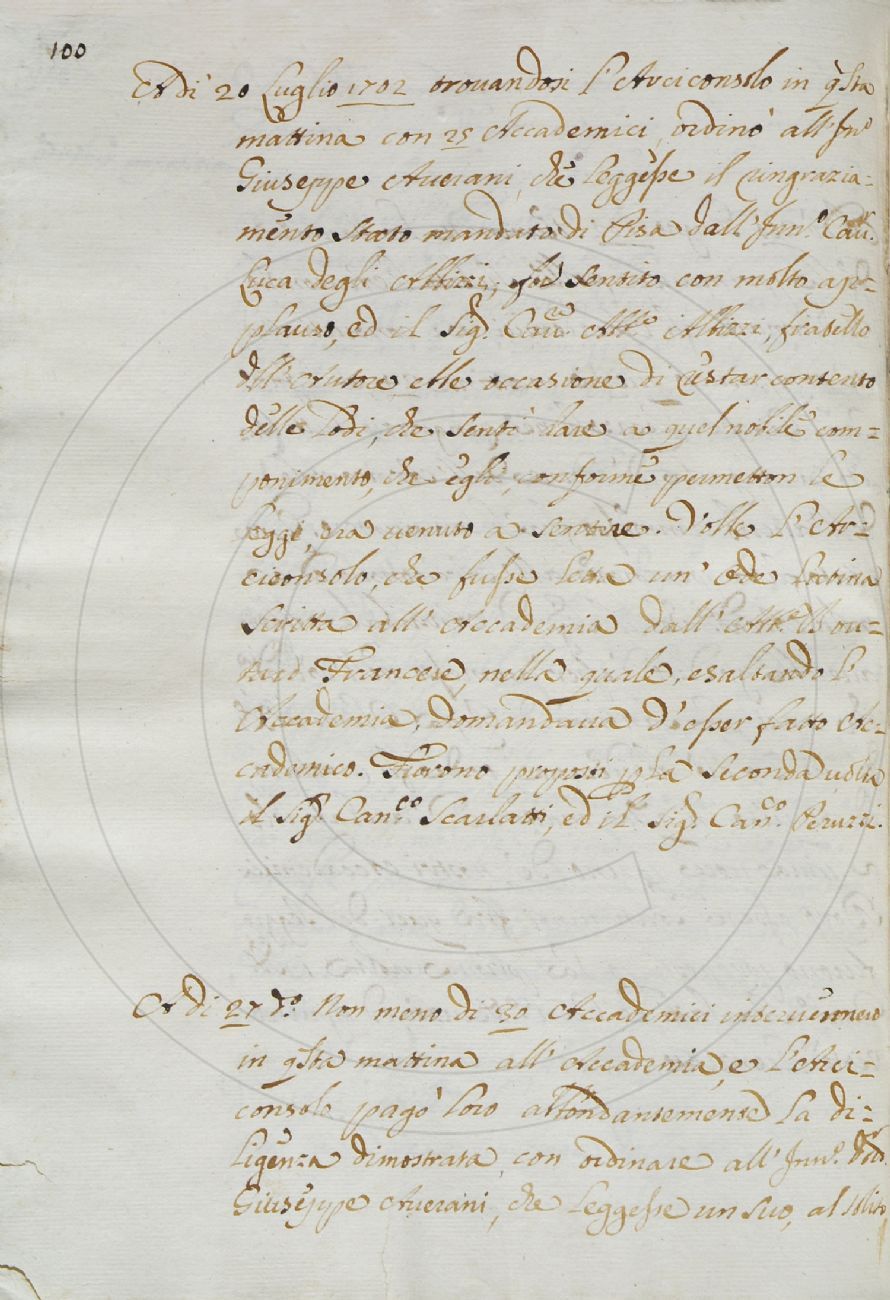 100
A di 20 Luglio 1702 trovandosi l'Arciconsolo in q̃sta
mattina con 25 Accademici, ordinò all'Inn.º
Giuseppe Averani, che leggesse il ringrazia=
mento stato mandato di Pisa dall'Inn.º Cav.
Luca degli Albizzi; fù sentito con molto ap=
plauso, ed il Sig.r Cav.re Albizzi, fratello
dell'Autore ebbe occasione di restar contento
delle lodi, che sentì dare a quel nobile com=
ponimento, che egli, conforme permetton le
leggi, era venuto a sentire. Volle l'Ar=
ciconsolo, che fusse letta un' Ode Latina
scritta all'Accademia dall'Ab.e
Francese, nella quale, esaltando l'
Accademia, domandava d'esser fatto Ac=
cademico. Furono proposti p la seconda volta
il Sig.r Can.co Scarlatti, ed il Sig.r Can.co Peruzzi.
A di 27 d.º Non meno di 30 Accademici intervennero
in q̃sta mattina all'Accademia, e l'Arci=
consolo pagò loro abbondantemente la di=
ligenza dimostrata, con ordinare all'Inn.º Dott.
Giuseppe Averani, che leggesse un suo, al solito